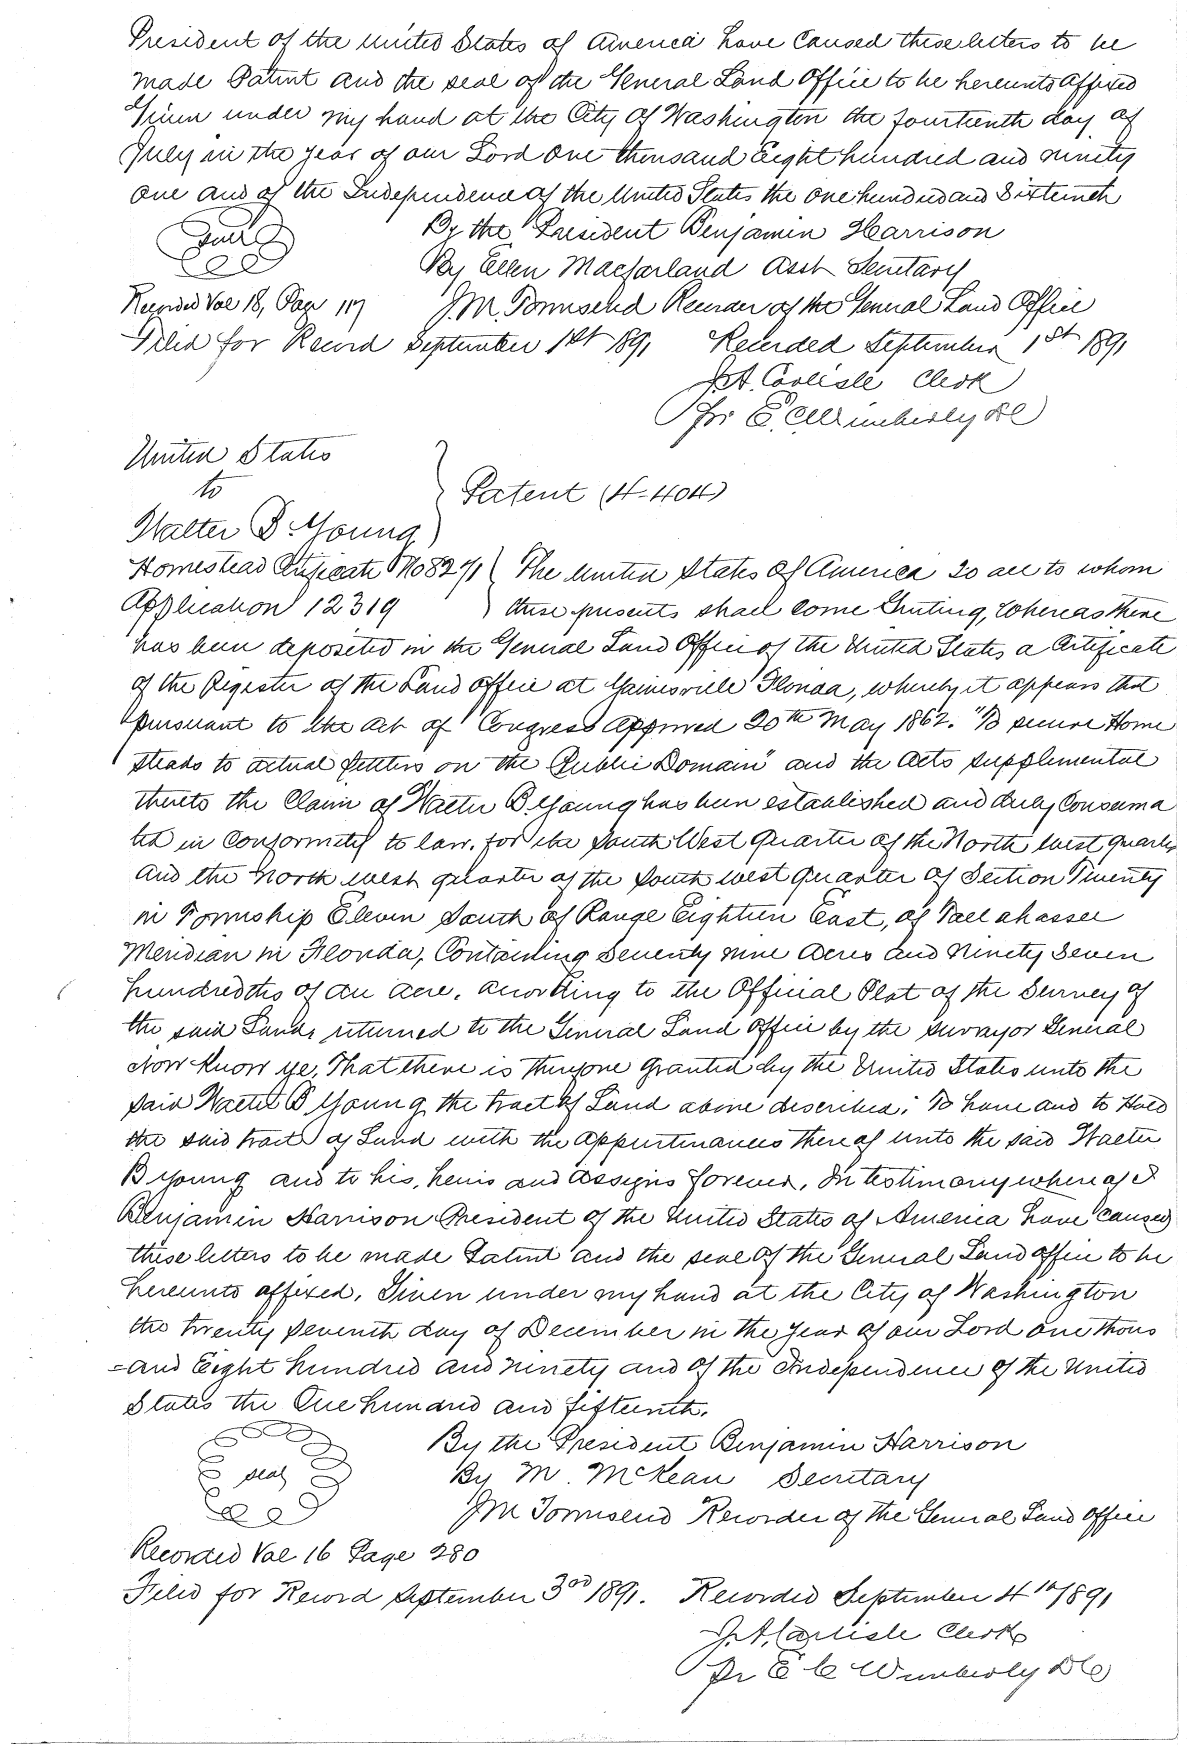 President of the United States of America have caused these letters to be
made Patent and the seal of the General Land Office to be hereunto affixed
Given under my hand at the City of Washington the fourteenth day of
July in the year of our Lord One thousand Eight hundred and ninety
one and of the Independence of the United States the one hundred and Sixteenth
Seal
By the President Benjamin Harrison
By Ellen Macfarland Asst Secretary
Recorded Vol 18, Page 117
J.M. Townsend Recorder of the General Land Office
Filed for Record September 1st 1891 Recorded September 1st 1891
J.A. Carlisle Clerk
Pr E. C. Wimberly DC
United States
to
Walter B. Young
Patent (4-404)
Homestead Certificate No 8271
Application 12319
The United States of America To all to whom
these presents shall come Greeting, Whereas there
has been deposited in the General Land Office of the United States a Certificate
of the Register of the Land office at Gainesville Florida, whereby it appears that
pursuant to the Act of Congress Approved 20th May 1862. "To secure Home
steads to actual settlers on the Public Domain" and the Acts supplemental
thereto the Claim of Walter B. Young has been established and duly Consuma
ted in Conformity to law, for the South West quarter of the North west quarter
and the North west quarter of the South west quarter of Section Twenty
in Township Eleven South of Range Eighteen East, of Tallahassee
Meridian in Florida, Containing Seventy nine acres and Ninety Seven
hundredths of an acre, according to the Official Plat of the Survey of
the said Lands returned to the General Land Office by the Surveyor General
Now Know ye, That there is therefore granted by the United States unto the
said Walter B Young the tract of Land above described: To have and to Hold
the said tract of Land with the appurtenances thereof unto the said Walter
B Young and to his, heirs and assigns forever, In testimony whereof I
Benjamin Harrison President of the United States of America have caused
these letters to be made Patent and the seal of the General Land office to be
hereunto affixed, Given under my hand at the City of Washington
the twenty seventh day of December in the year of our Lord one thous
=and Eight hundred and ninety and of the Independence of the United
States the One hundred and fifteenth.
seal
By the President Benjamin Harrison
By M. McKean Secretary
J M Townsend Recorder of the General Land Office
Recorded Vol 16 Page 280
Filed for Record September 3rd 1891. Recorded September 4th 1891
J.A. Carlisle Clerk
Pr E C Wimberly DC